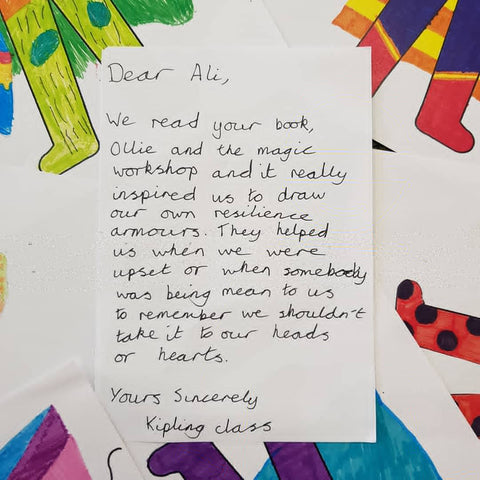 Dear Ali,
We read your book,
Ollie and the magic
workshop and it really
inspired us to draw
our own resilience
armours. They helped
us when we were
upset or when somebody
was being mean to us
to remember we shouldn't
take it to our heads
or hearts.
Yours Sincerely
Kipling class